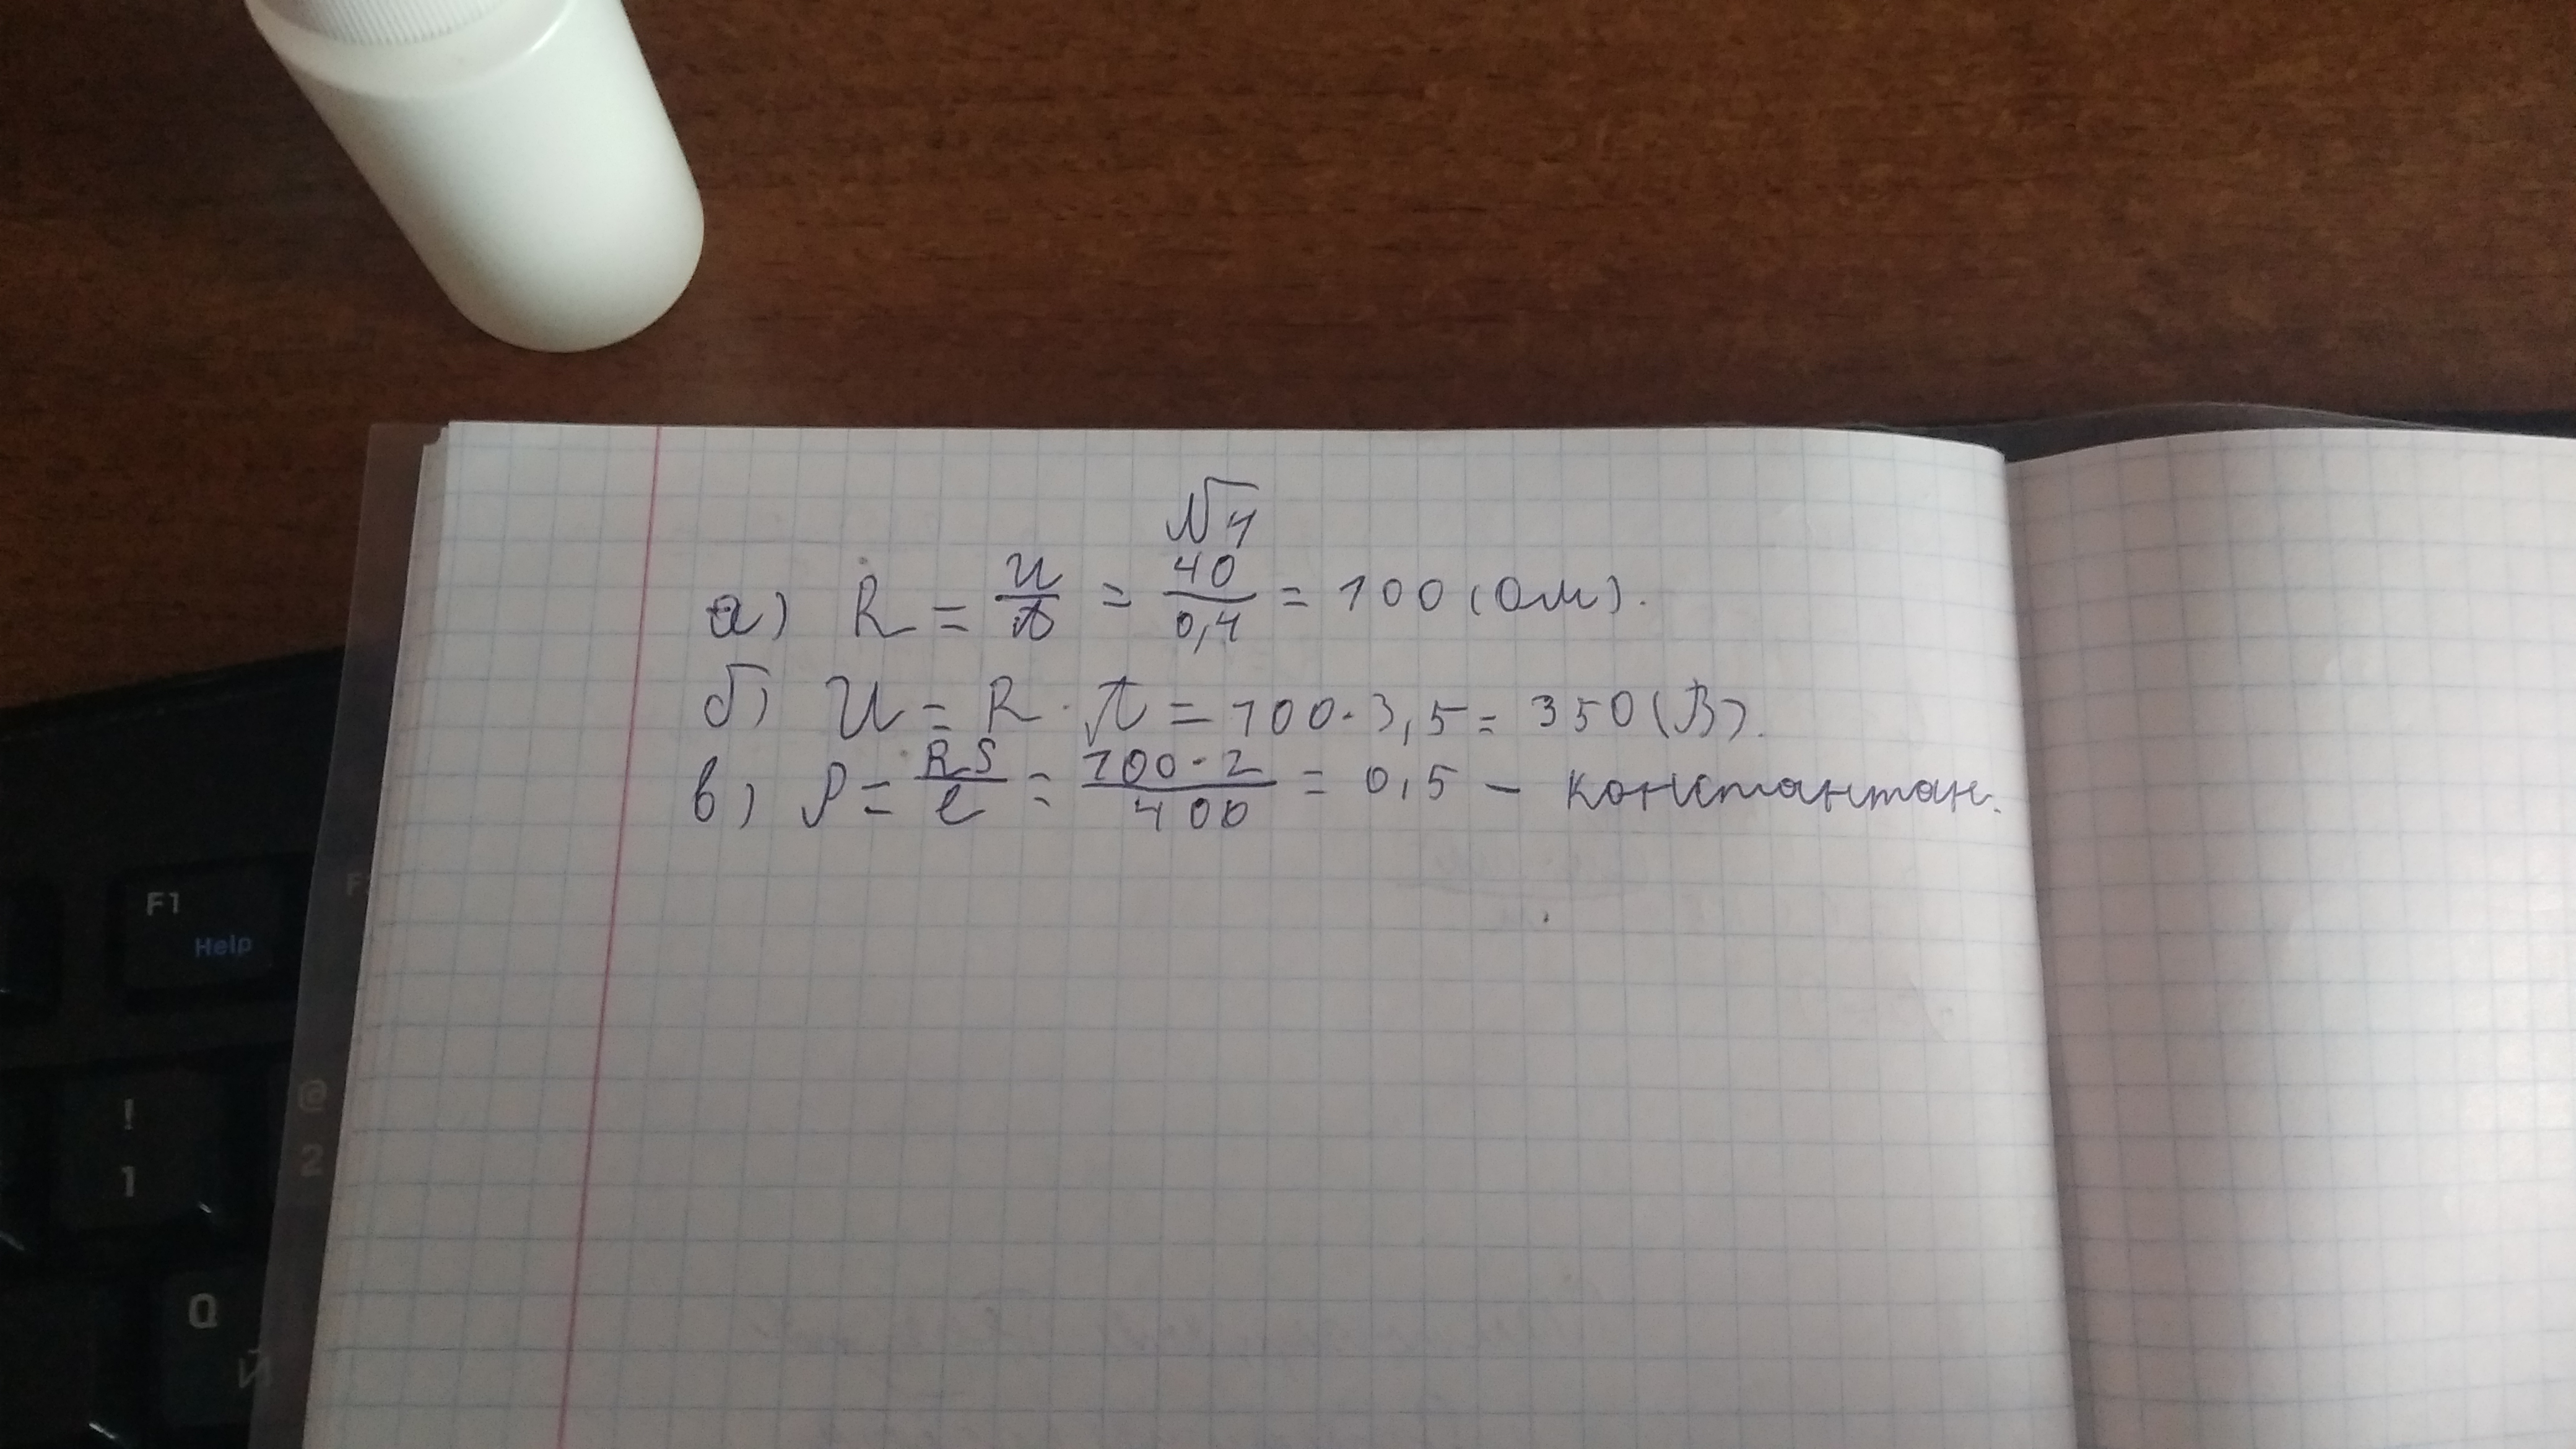 №1
а) R = U/I = 40/0,4 = 100 (Ом).
б) U = R · I = 100 · 3,5 = 350 (В).
в) ρ = RS/l = 100 · 2/400 = 0,5 – константан.
F1
Help
@
2
!
1
Q
Й